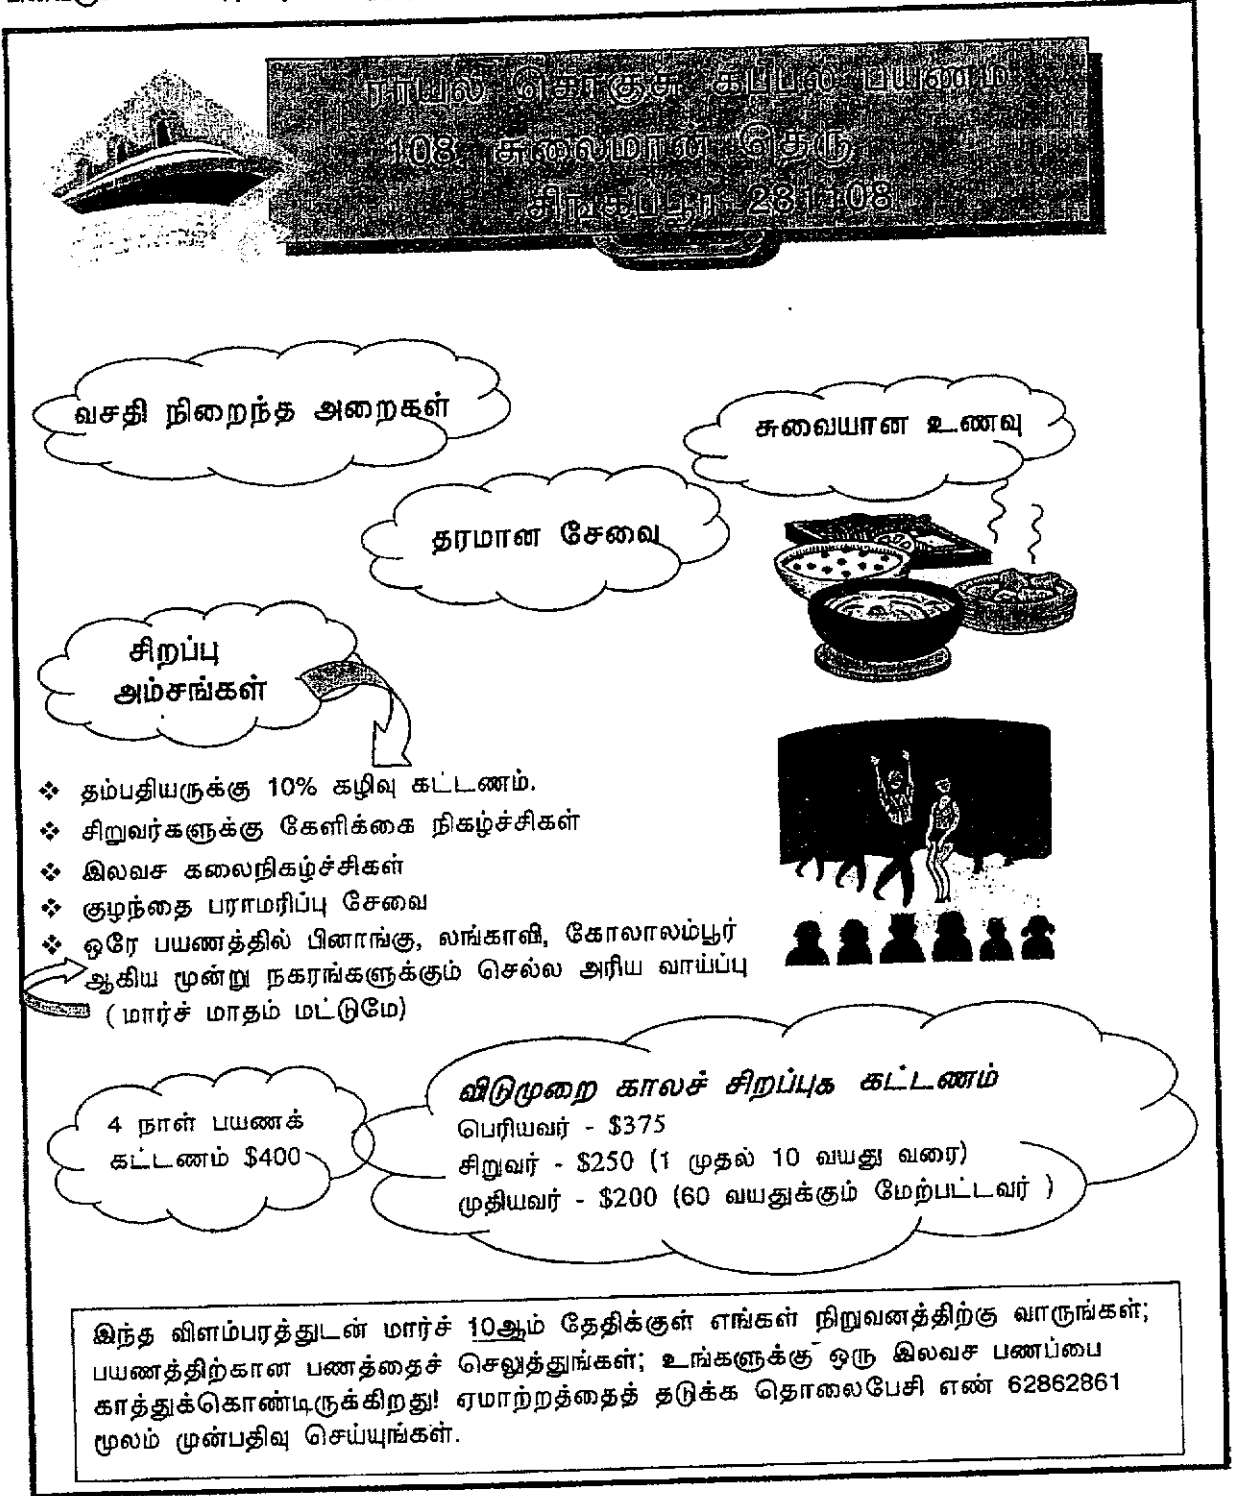 ராயல் சொகுசு கப்பல் பயணம்,
108, சுலைமான் தெரு,
சிங்கப்பூர் 281108
வசதி நிறைந்த அறைகள்
சுவையான உணவு
தரமான சேவை
சிறப்பு
அம்சங்கள்
❖ தம்பதியருக்கு 10% கழிவு கட்டணம்.
❖ சிறுவர்களுக்கு கேளிக்கை நிகழ்ச்சிகள்
❖ இலவச கலைநிகழ்ச்சிகள்
❖ குழந்தை பராமரிப்பு சேவை
❖ ஒரே பயணத்தில் பினாங்கு, லங்காவி, கோலாலம்பூர்
ஆகிய மூன்று நகரங்களுக்கும் செல்ல அரிய வாய்ப்பு
( மார்ச் மாதம் மட்டுமே)
4 நாள் பயணக்
கட்டணம் $400
விடுமுறை காலச் சிறப்புக கட்டணம்
பெரியவர் - $375
சிறுவர் - $250 (1 முதல் 10 வயது வரை)
முதியவர் - $200 (60 வயதுக்கும் மேற்பட்டவர் )
இந்த விளம்பரத்துடன் மார்ச் 10ஆம் தேதிக்குள் எங்கள் நிறுவனத்திற்கு வாருங்கள்;
பயணத்திற்கான பணத்தைச் செலுத்துங்கள்; உங்களுக்கு ஒரு இலவச பணப்பை
காத்துக்கொண்டிருக்கிறது! ஏமாற்றத்தைத் தடுக்க தொலைபேசி எண் 62862861
மூலம் முன்பதிவு செய்யுங்கள்.